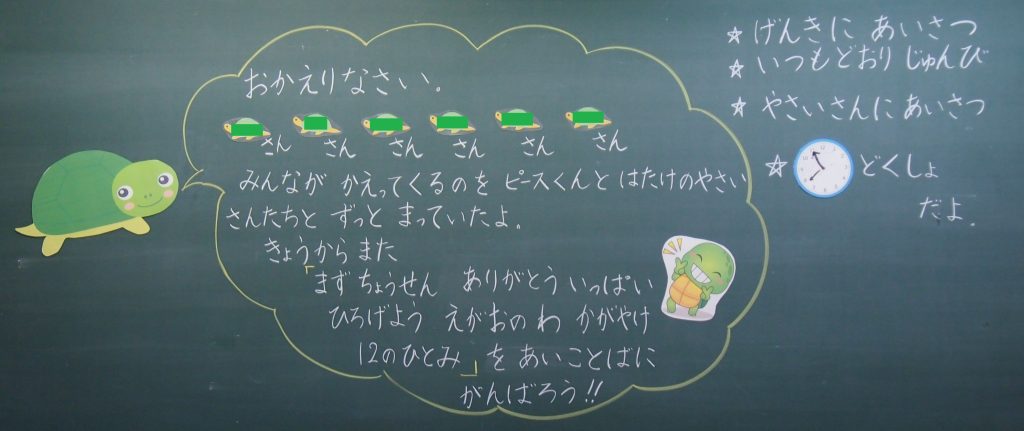 おかえりなさい。
さん さん さん さん さん さん
みんなが かえってくるのを ピースくんと はたけのやさい
さんたちと ずっと まっていたよ。
きょうから また
「まず ちょうせん ありがとう いっぱい
ひろげよう えがおの わ かがやけ
12のひとみ」を あいことばに
がんばろう!!
☆ げんきに あいさつ
☆ いつもどおり じゅんび
☆ やさいさんに あいさつ
☆ どくしょ
だよ。